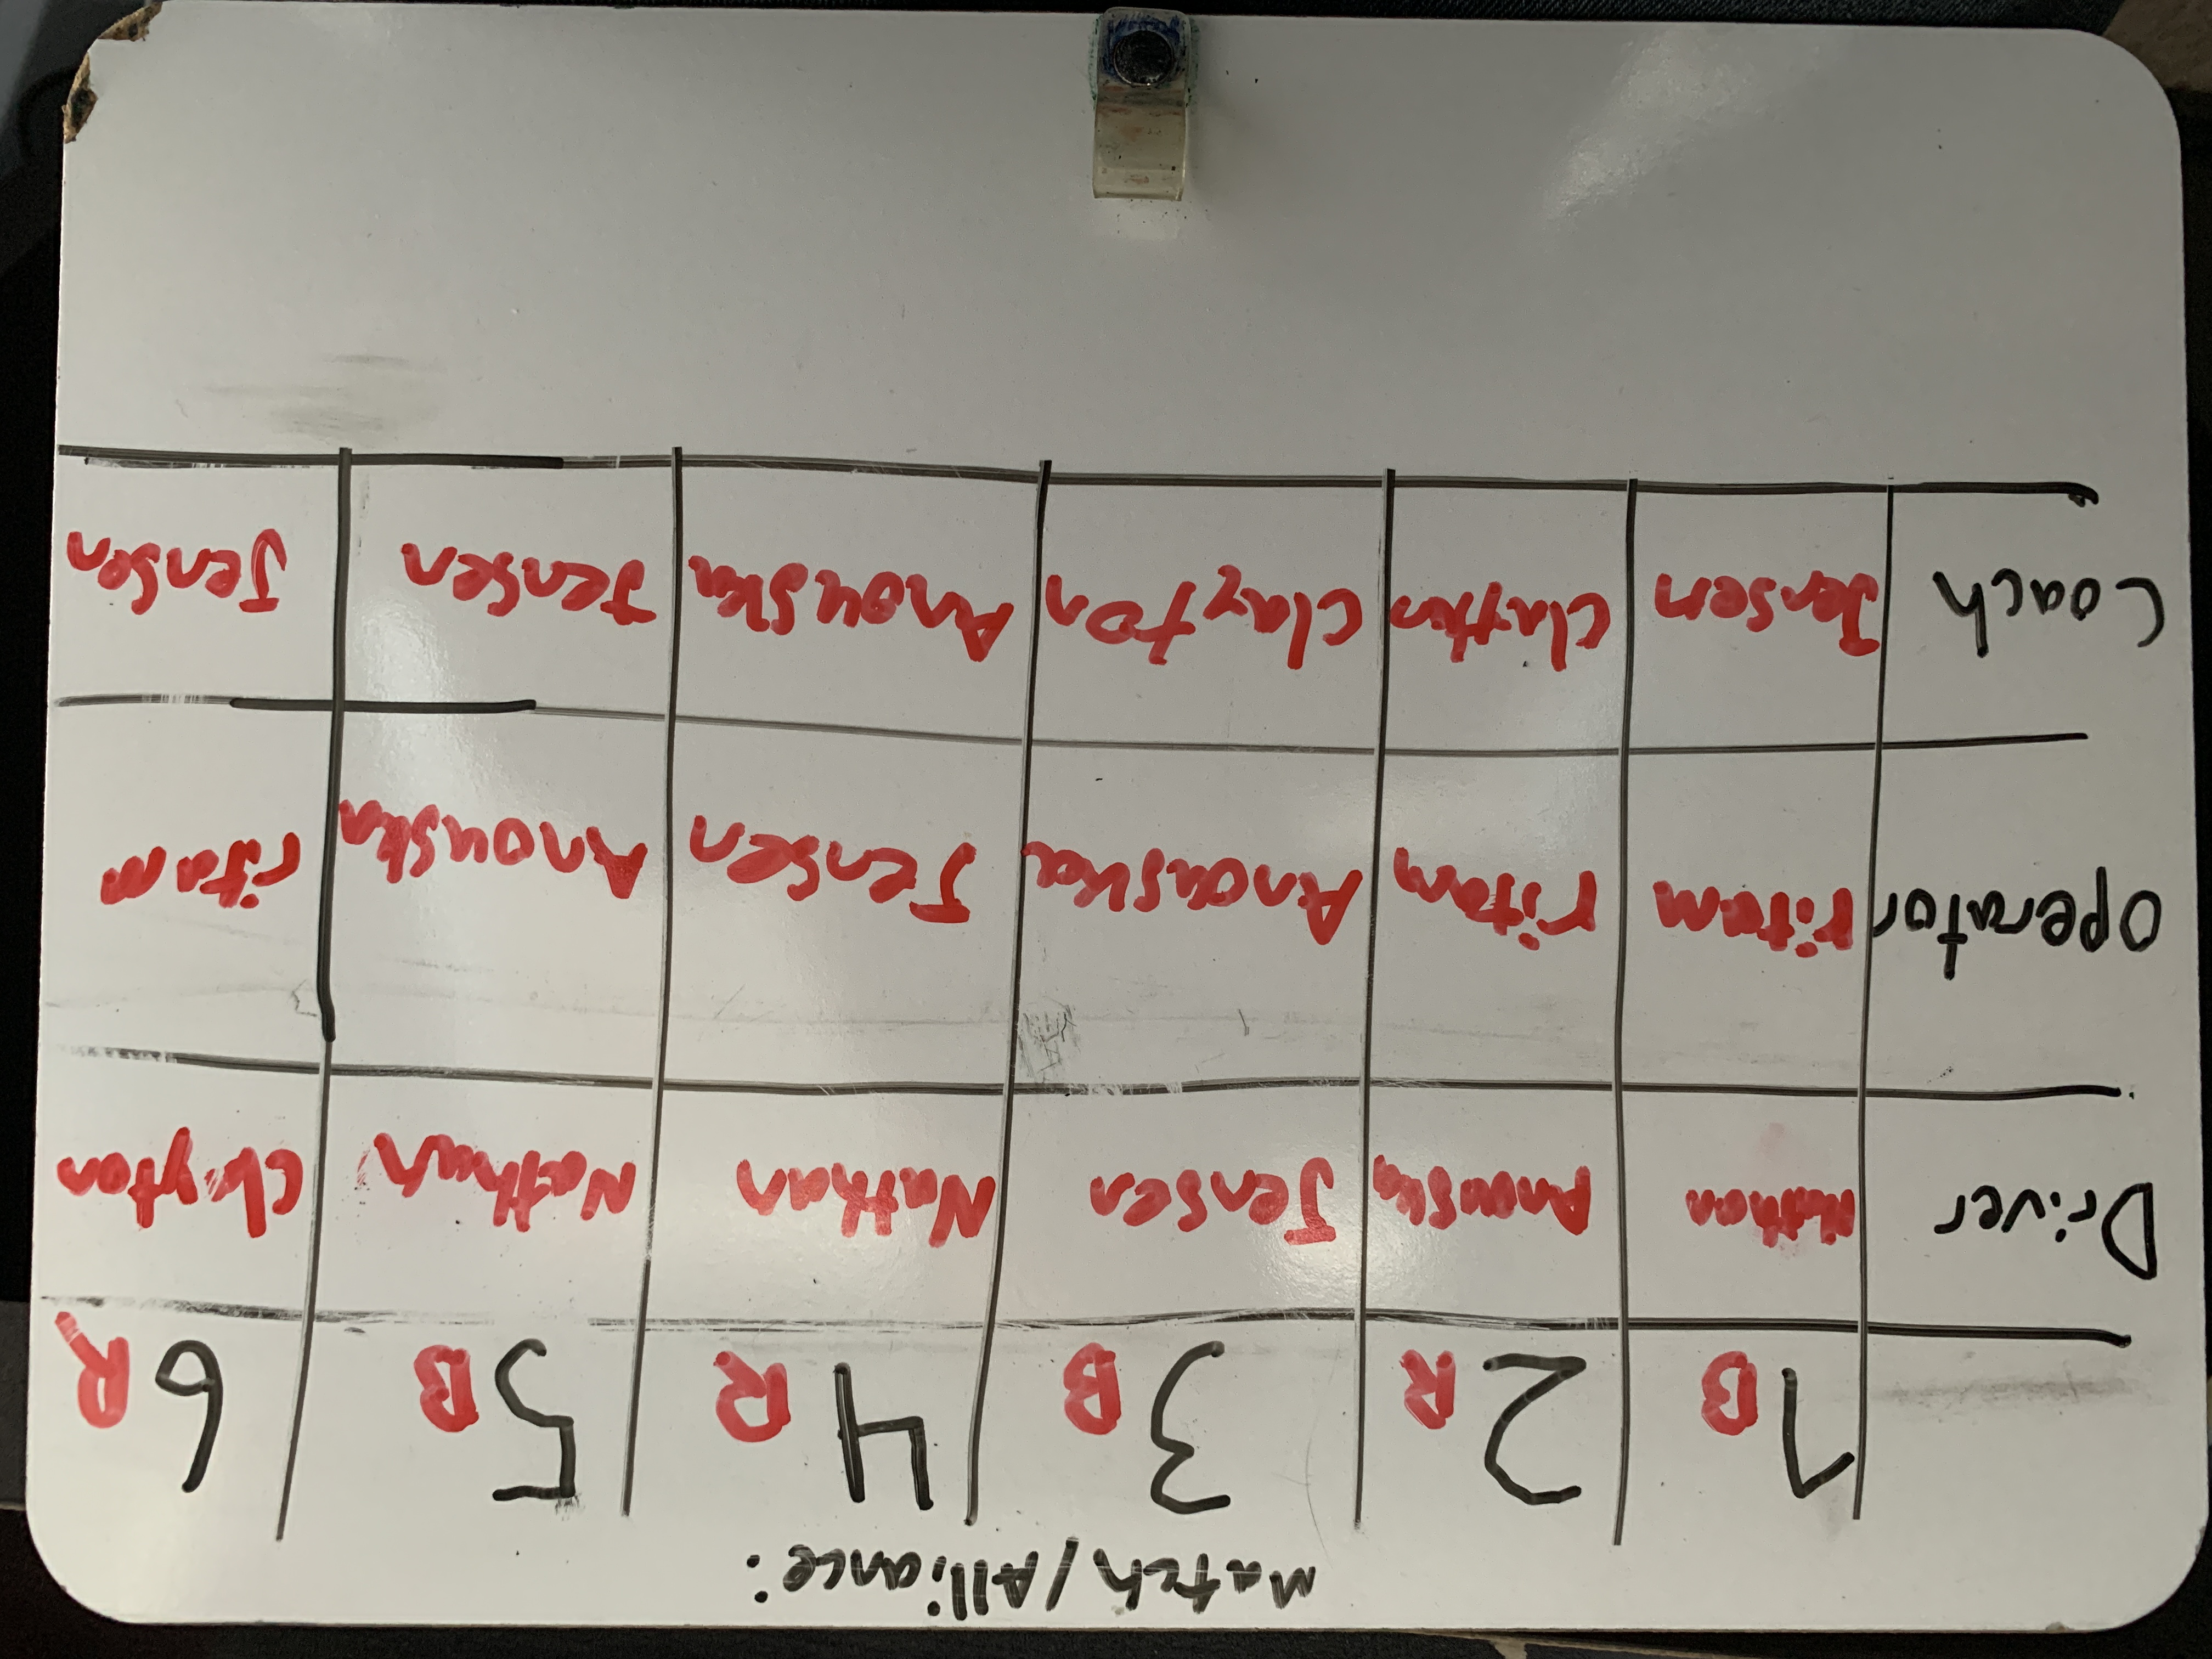 Match/Alliance:
1B 2R 3B 4R 5B 6R
Driver Nathan Anouska Jensen Nathan Nathan Clayton
operator ritam ritam Anouska Jensen Anouska ritam
Coach Jensen Clayton Anouska Jensen Jensen